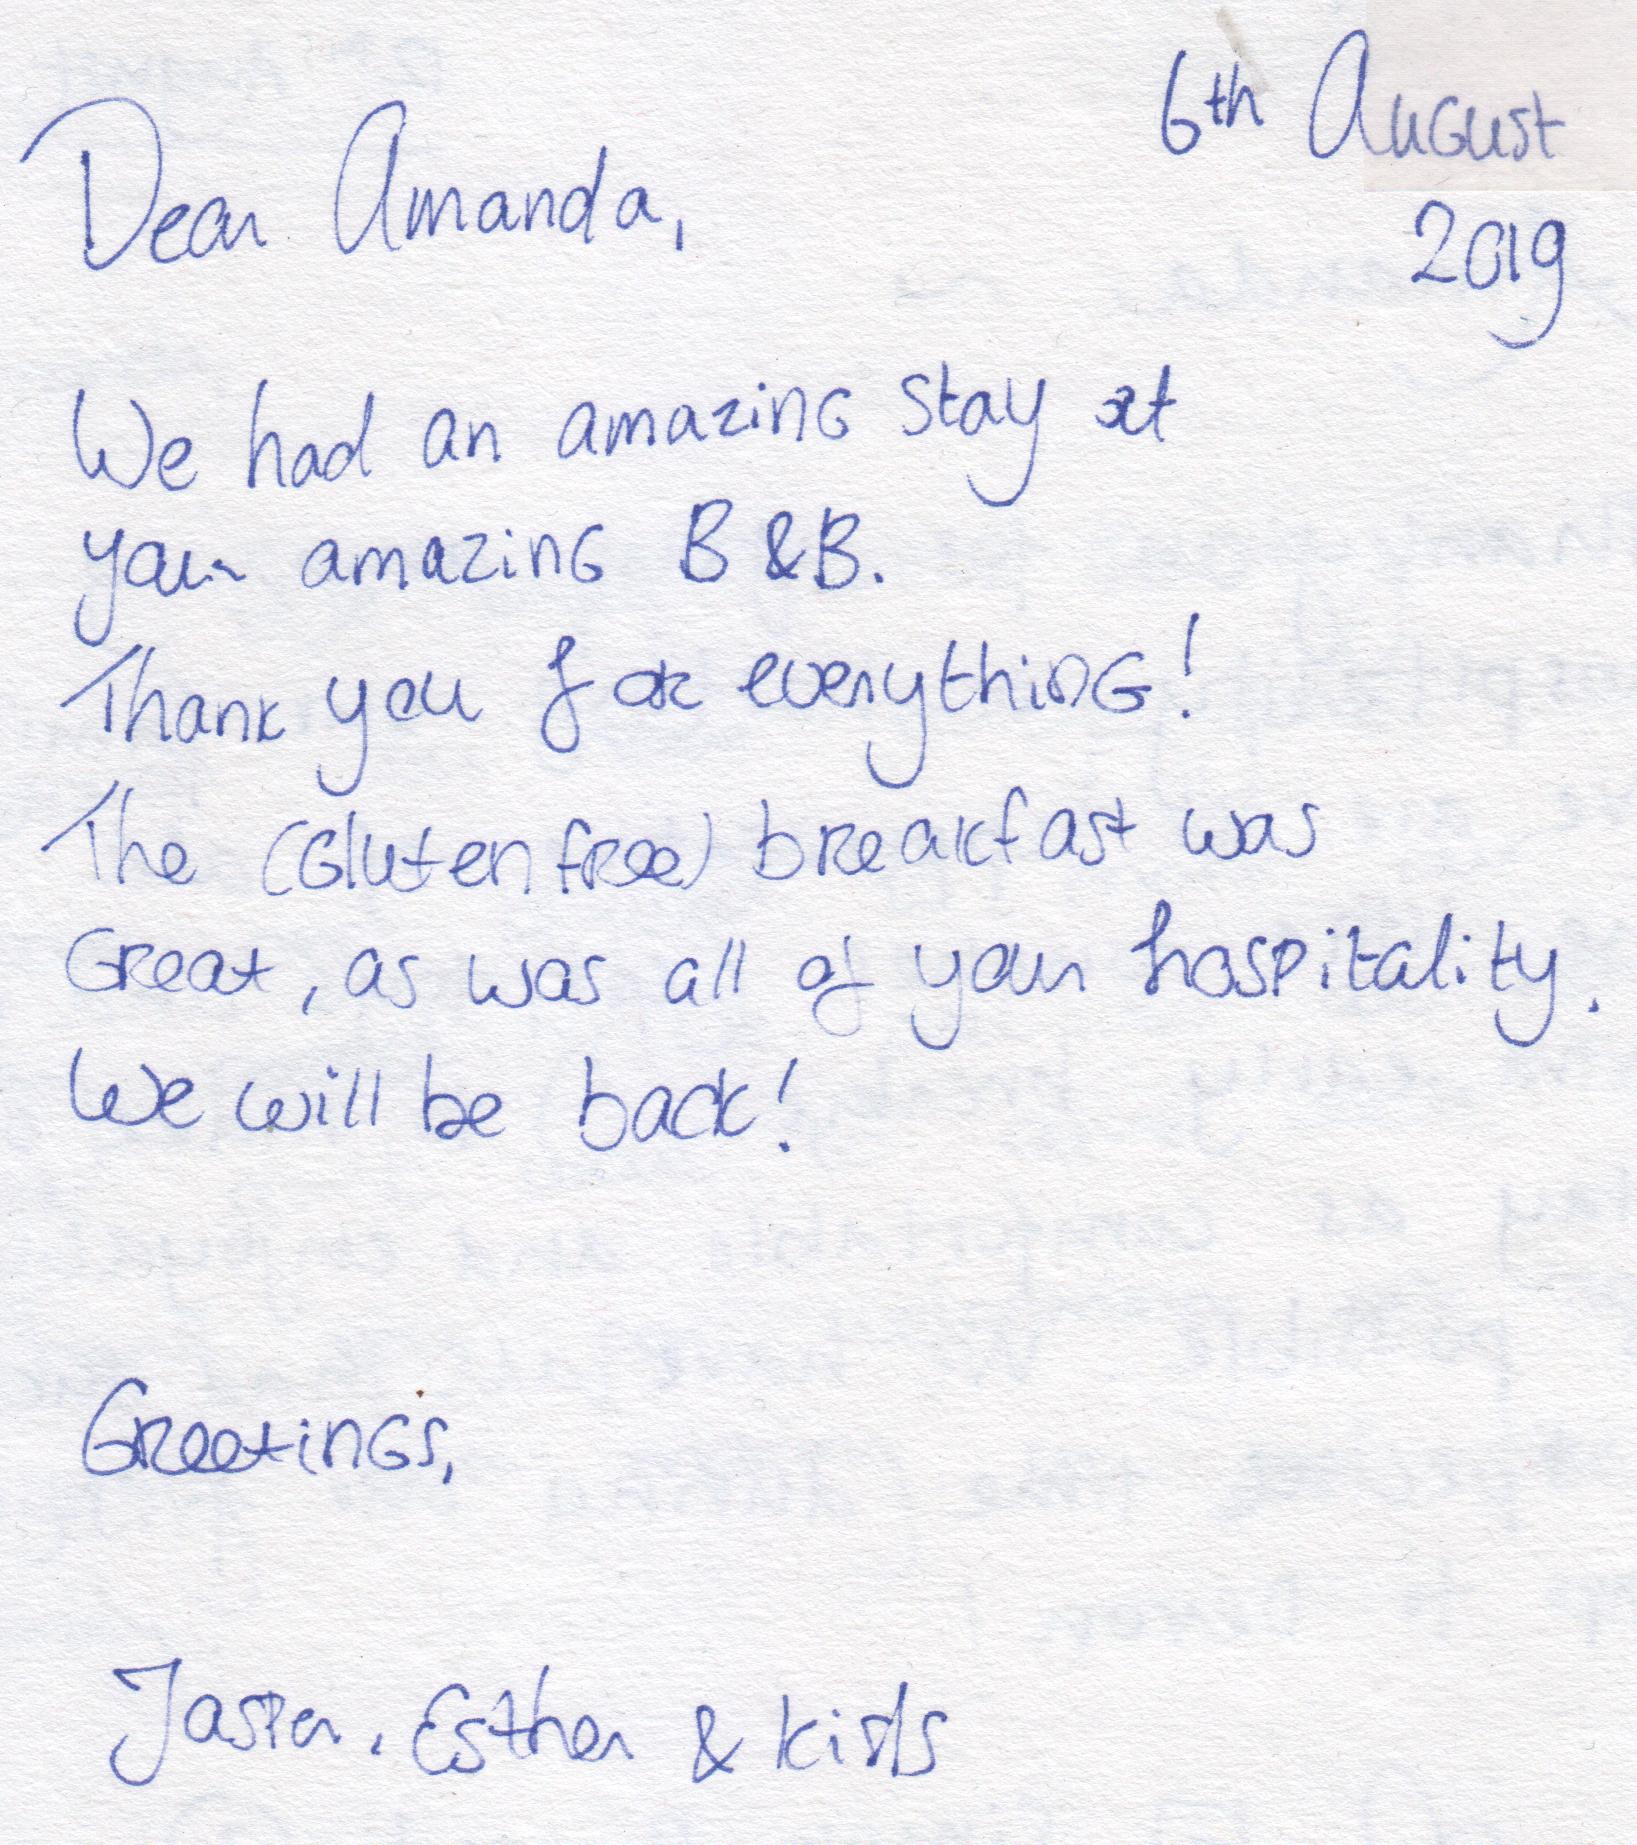 6th August
2019
Dear Amanda,
We had an amazing stay at
your amazing B&B.
Thank you for everything!
The (Glutenfree) breakfast was
Great, as was all of your hospitality.
We will be back!
Greetings,
Jasper, Esther & kids